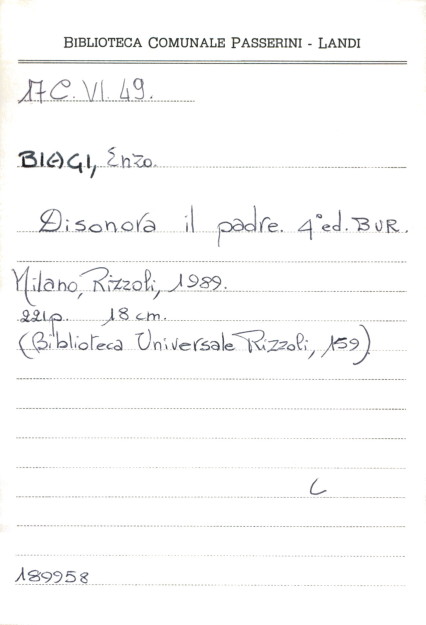 BIBLIOTECA COMUNALE PASSERINI - LANDI
17 C. VI. 49.
BIAGI, Enzo.
Disonora il padre. 4ª ed. BUR.
Milano, Rizzoli, 1989.
221 p. 18 cm.
(Biblioteca Universale Rizzoli, 159)
C
189958